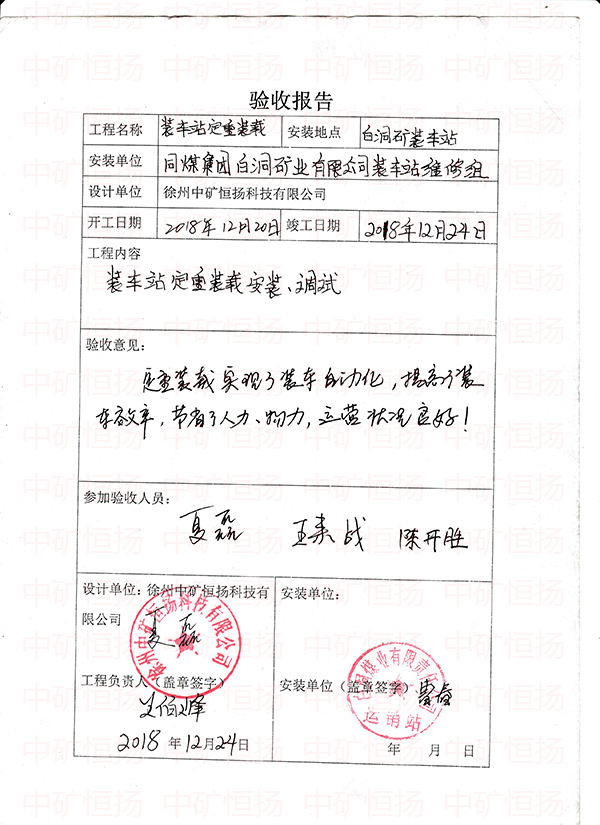 验收报告
工程名称 装车站定重装载 安装地点 白洞矿装车站
安装单位 同煤集团白洞矿业有限公司装车站维修组
设计单位 徐州中矿恒扬科技有限公司
开工日期 2018年12月20日 竣工日期 2018年12月24日
工程内容
装车站定重装载安装、调试
验收意见:
定重装载实现了装车自动化,提高了装
车效率,节省了人力、物力,运营状况良好!
参加验收人员:
夏磊 陈开胜
设计单位:徐州中矿恒扬科技有 安装单位:
限公司
夏磊
徐州中矿恒扬科技有限公司
工程负责人(盖章签字) 安装单位(盖章签字)
运销站
2018年12月24日 年 月 日
中矿恒扬